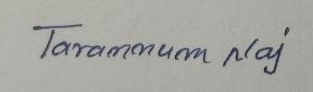 Tarannum Naj